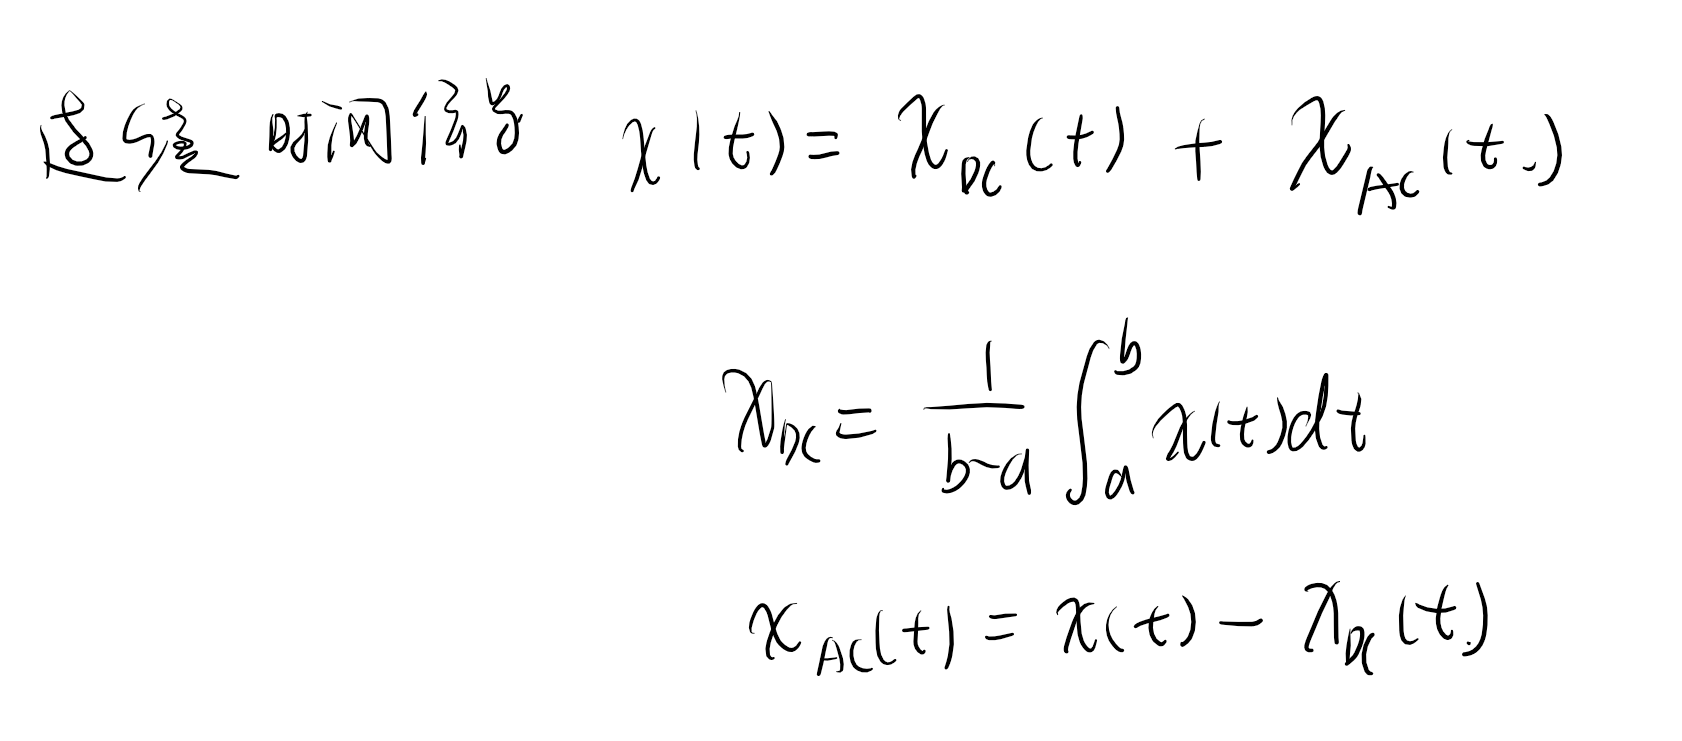 连续时间信号 x(t) = x_DC(t) + x_AC(t)
x_DC = \frac{1}{b-a} \int_a^b x(t)dt
x_AC(t) = x(t) - x_DC(t)